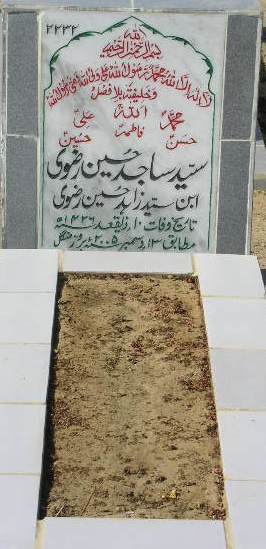 ۲۲۳۲
بسم اللہ الرحمن الرحیم
لا الہ الا اللہ محمد رسول اللہ علی ولی اللہ وصی رسول اللہ
وخلیفتہ بلا فصل
محمد اللہ علی
حسن فاطمہ حسین
سید ساجد حسین رضوی
ابن سید زاہد حسین رضوی
تاریخ وفات ۱۰ ذیقعد ۱۴۲۶ھ
مطابق ۱۳ دسمبر ۲۰۰۵ء بروز منگل